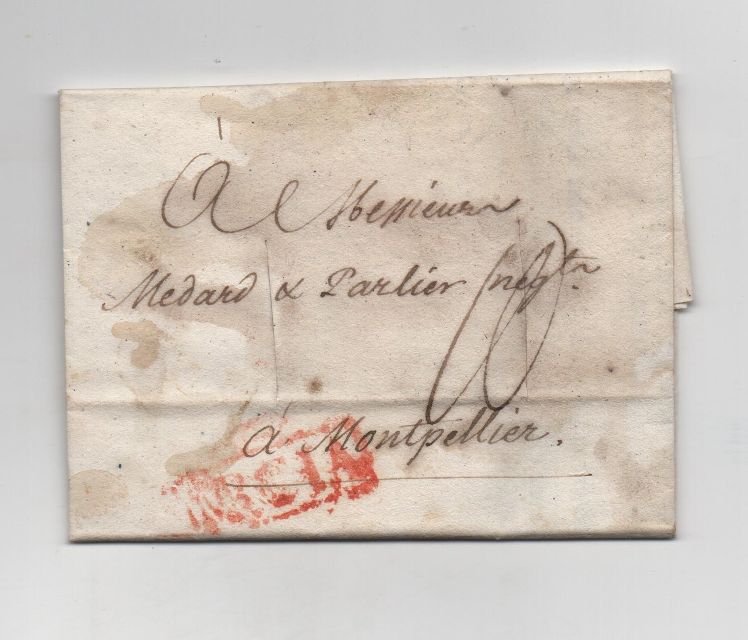 A Messieurs
Medard & Parlier negts
á Montpellier.